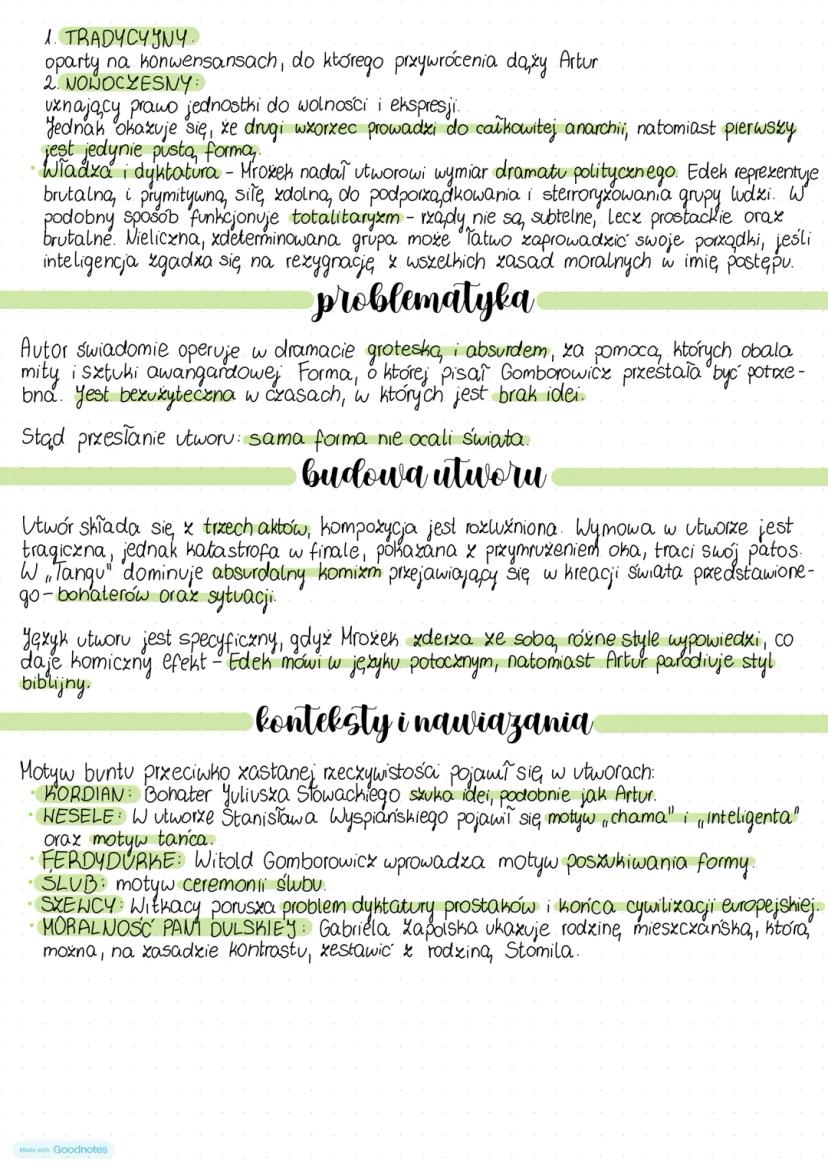 1. TRADYCYJNY:
oparty na konwensansach, do którego przywrócenia dąży Artur
2. NOWOCZESNY:
uznający prawo jednostki do wolności i ekspresji.
Jednak okazuje się, że drugi wzorzec prowadzi do całkowitej anarchii, natomiast pierwszy
jest jedynie pustą formą.
• Władza i dyktatura - Mrożek nadał utworowi wymiar dramatu politycznego. Edek reprezentuje
brutalną i prymitywną siłę zdolną do podporządkowania i sterroryzowania grupy ludzi. W
podobny sposób funkcjonuje totalitaryzm - rządy nie są subtelne, lecz prostackie oraz
brutalne. Nieliczna, zdeterminowana grupa może łatwo zaprowadzić swoje porządki, jeśli
inteligencja zgadza się na rezygnację z wszelkich zasad moralnych w imię postępu.
problematyka
Autor świadomie operuje w dramacie groteską i absurdem, za pomocą których obala
mity i sztuki awangardowej. Forma, o której pisał Gomborowicz przestała być potrze-
bna. Jest bezużyteczna w czasach, w których jest brak idei.
Stąd przesłanie utworu: sama forma nie ocali świata.
budowa utworu
Utwór składa się z trzech aktów, kompozycja jest rozluźniona. Wymowa w utworze jest
tragiczna, jednak katastrofa w finale, pokazana z przymrużeniem oka, traci swój patos.
W „Tangu" dominuje absurdalny komizm przejawiający się w kreacji świata przedstawione-
go - bohaterów oraz sytuacji.
Język utworu jest specyficzny, gdyż Mrożek zderza ze sobą różne style wypowiedzi, co
daje komiczny efekt - Edek mówi w języku potocznym, natomiast Artur parodiuje styl
biblijny.
konteksty i nawiązania
Motyw buntu przeciwko zastanej rzeczywistości pojawił się w utworach:
• KORDIAN: Bohater Juliusza Słowackiego szuka idei, podobnie jak Artur.
• WESELE: W utworze Stanisława Wyspiańskiego pojawił się motyw „chama" i „inteligenta"
oraz motyw tańca.
• FERDYDURKE: Witold Gomborowicz wprowadza motyw poszukiwania formy.
• ŚLUB: motyw ceremonii ślubu.
• SZEWCY: Witkacy porusza problem dyktatury prostaków i końca cywilizacji europejskiej.
• MORALNOŚĆ PANI DULSKIEJ: Gabriela Zapolska ukazuje rodzinę mieszczańską, którą
można, na zasadzie kontrastu, zestawić z rodziną Stomila.
Made with Goodnotes